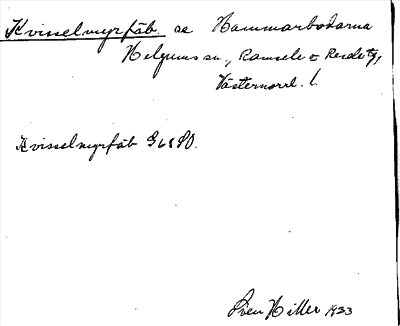 Kvisselmyrfäb. se Hammarbodarna
Helgums sn., Ramsele o Resele tg,
Västernorrl. l.
Kvisselmyrfäb
Sven Hiller 1933